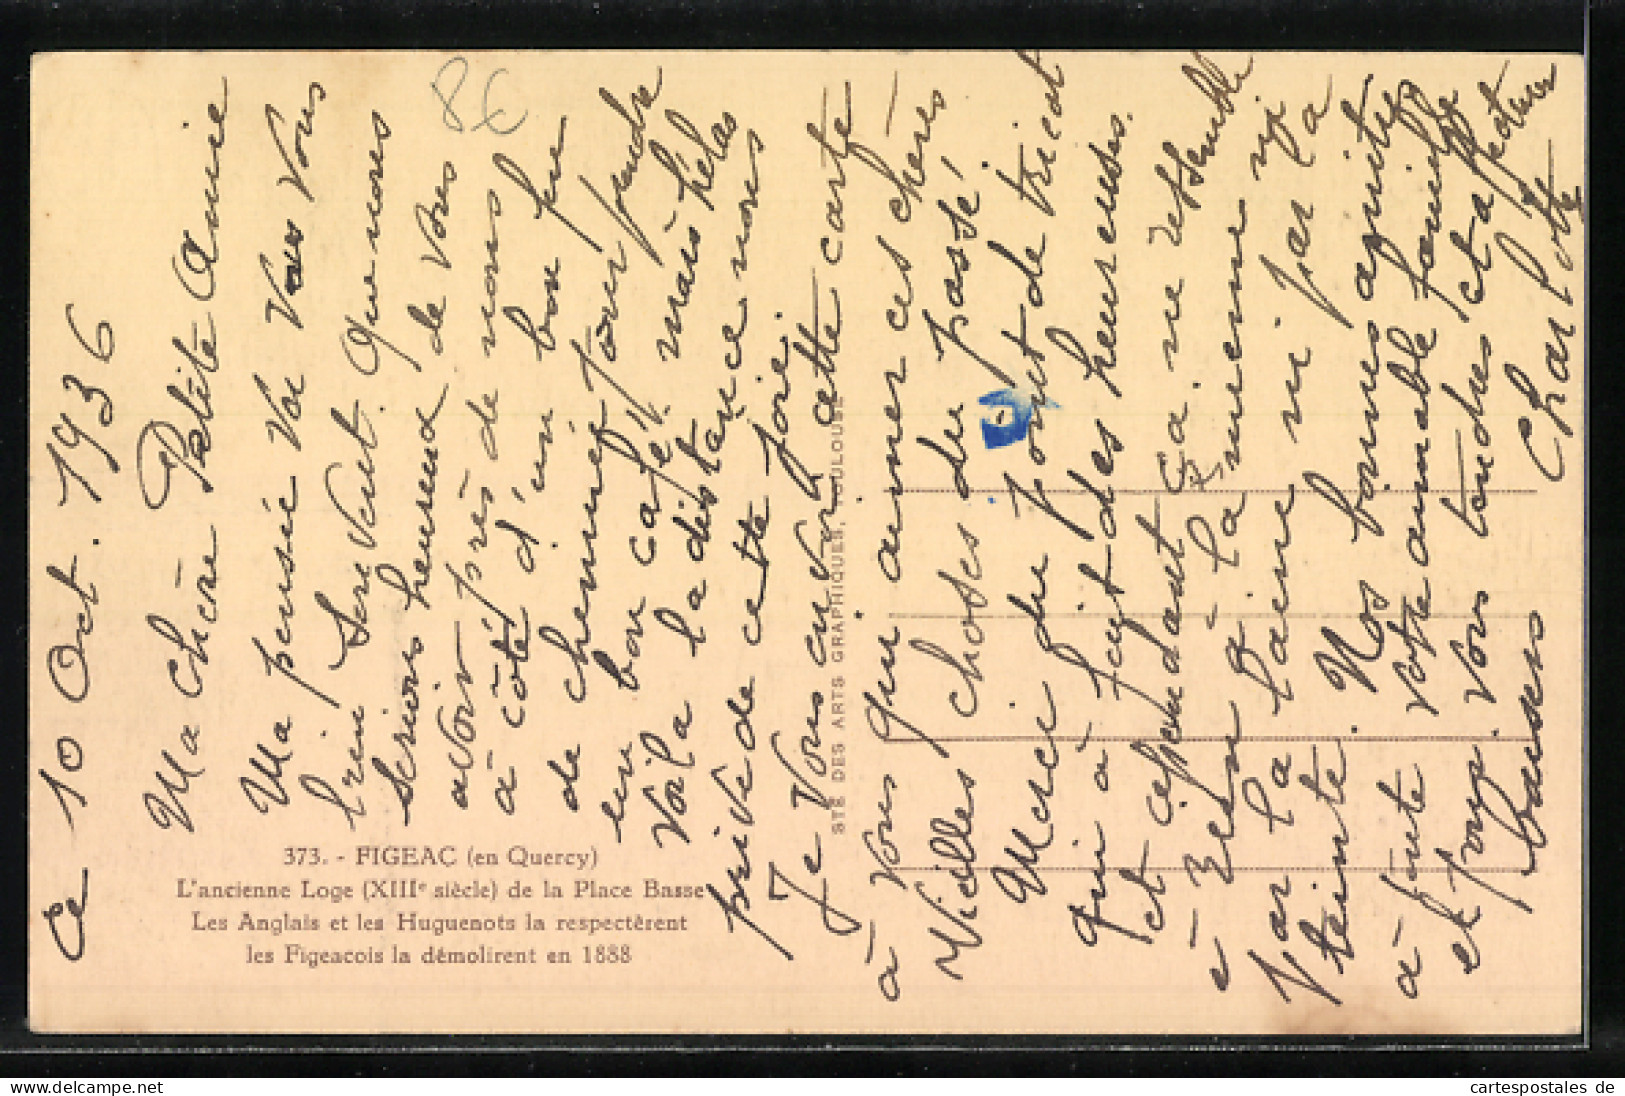 Ce 10 Oct. 1936
Ma chère Petite Amie
Ma pensée Va Vous Vous
bien souvent. Que nous
serions heureux de Vous
avoir près de nous
à côté d'un bon feu
de cheminée pour prendre
un bon café!! mais hélas
Voila la distance nous
prive de cette joie.
Je Vous envoie cette carte
à Vous qui aimer ces chères
Vieilles choses du passé
Merci du point de tricot
qui a fait des heureuses.
et cependant ça ne ressemble
à rien à la mienne ni
par la laine ni par la
teinte. Nos bonnes amitiés
à toute votre aimable famille
et pour Vous tendres et affectueux
baisers Charlotte
8€
373. - FIGEAC (en Quercy)
L'ancienne Loge (XIIIe siècle) de la Place Basse
Les Anglais et les Huguenots la respectèrent
les Figeacois la démolirent en 1888
STÉ DES ARTS GRAPHIQUES, TOULOUSE
www.delcampe.net
cartespostales de